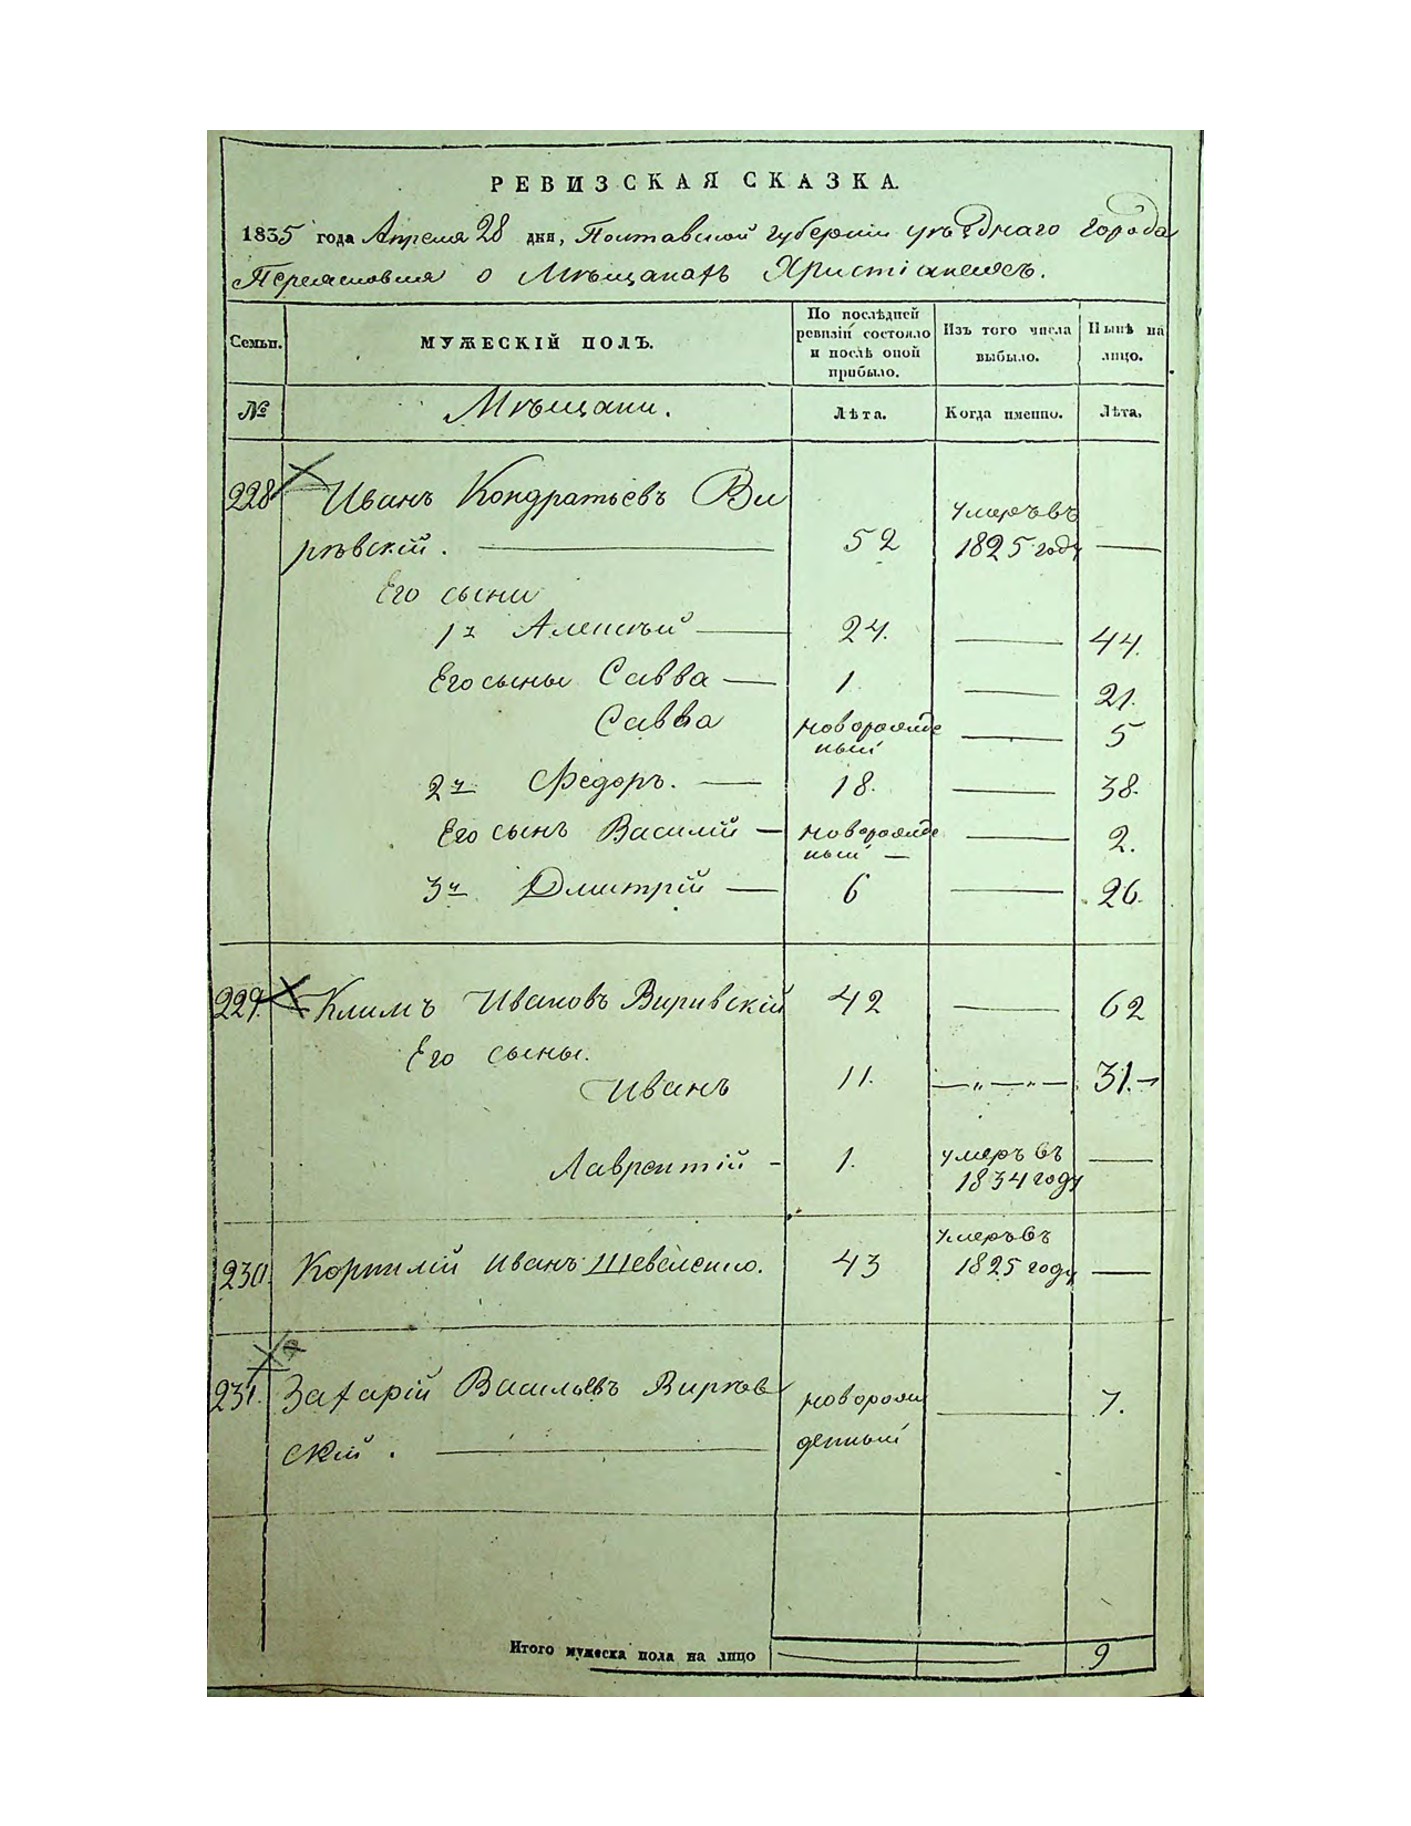 РЕВИЗСКАЯ СКАЗКА.
1835 года Апреля 28 дня, Полтавской губернии уѣзднаго города
Переяславля о Мѣщанахъ Христіанехъ.
Семьи.
МУЖЕСКІЙ ПОЛЪ.
По послѣдней ревизіи состояло и послѣ оной прибыло.
Изъ того числа выбыло.
Нынѣ на лицо.
№ Мѣщани. Лѣта. Когда именно. Лѣта.
228 Иванъ Кондратьевъ Ви
рѣвскій. — 52 умеръ въ 1825 году —
Его сыни
1й Алексѣй — 24. — 44.
Его сыны Савва — 1. — 21.
Савва новорожде ный — 5
2й Федоръ. — 18. — 38.
Его сынъ Василій — новорожде ный — — 2.
3й Дмитрій — 6 — 26.
229. Климъ Ивановъ Виривскій 42 — 62
Его сыны.
Иванъ 11. —„—„— 31.—
Лаврентій - 1. умеръ въ 1834 году —
230. Корнилій Иванъ Шевеленко. 43 умеръ въ 1825 году —
231. Захарій Васильевъ Вирѣв новорож — 7.
скій. — денный
Итого мужеска пола на лицо — — 9